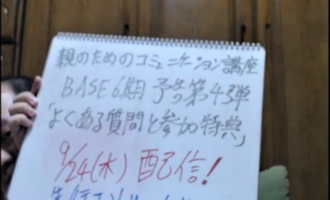 親のためのコミュニケーション講座
BASE6期 予告第4弾
「よくある質問と参加特典」
9/24(水) 配信!